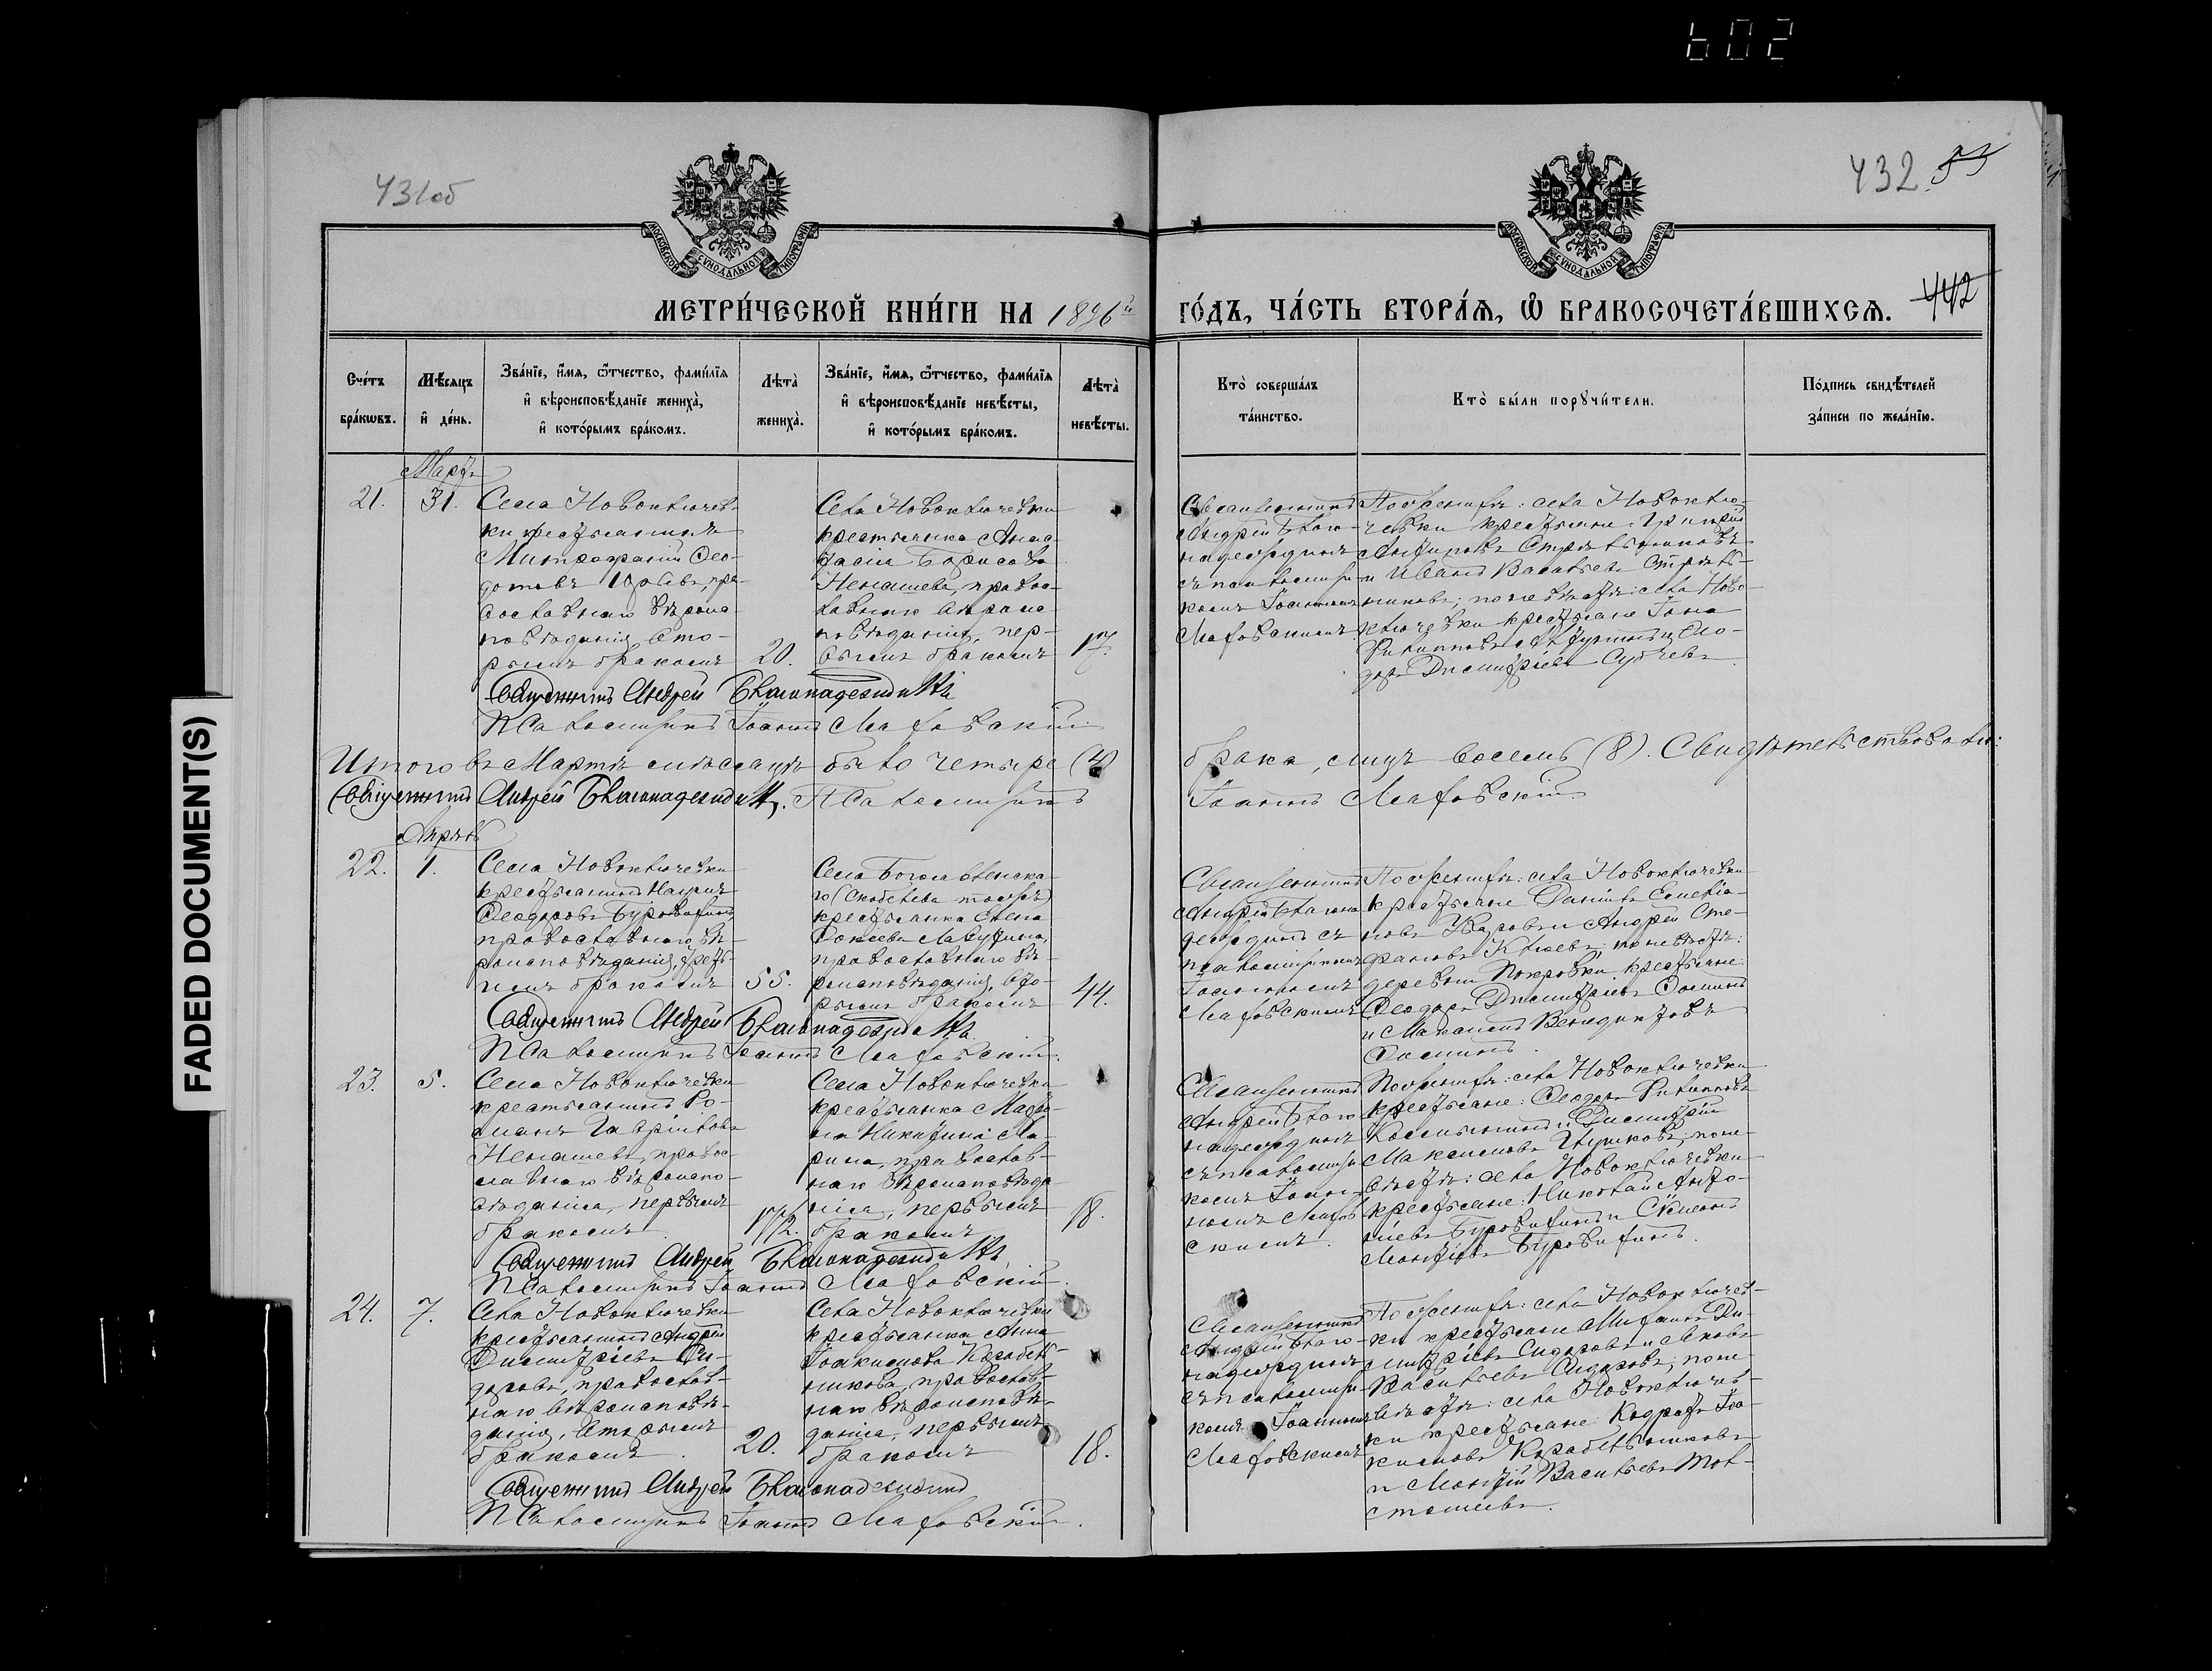 602
431об
432 53
442
МОСКОВСКОЙ СѴНОДАЛЬНОЙ ТИПОГРАФІИ
МОСКОВСКОЙ СѴНОДАЛЬНОЙ ТИПОГРАФІИ
МЕТРИ́ЧЕСКОЙ КНИ́ГИ НА 1896й ГО́ДЪ, ЧА́СТЬ ВТОРА́Я, Ѡ БРАКОСОЧЕТА́ВШИХСЯ.
Сче́тъ бра́кѡвъ.
Мѣ́сяцъ и де́нь.
Зва́нїе, и́мя, ѻ҆́тчество, фами́лїя
и вѣроисповѣ́данїе жениха̀,
и кото́рымъ бра́комъ.
Лѣта̀ жениха̀.
Зва́нїе, и́мя, ѻ҆́тчество, фами́лїя
и вѣроисповѣ́данїе невѣ́сты,
и кото́рымъ бра́комъ.
Лѣта̀ невѣ́сты.
Кто̀ соверша́лъ та́инство.
Кто̀ бы́ли порꙋчи́тели.
По́дпись свидѣ́телей за́писи по жела́нїю.
Мартъ
21. 31.
Села Новоключев-
ки крестьянинъ
Митрофаній Ѳео-
дотовъ Юрьевъ, пра-
вославнаго вѣроис-
повѣданія, вто-
рымъ бракомъ
20.
Села Новоключевки
крестьянка Анас-
тасія Борисова
Ненашева, правос-
лавнаго вѣроис-
повѣданія, пер-
вымъ бракомъ
17.
Священникъ
Андрей Благо-
надеждинъ
съ псаломщи-
комъ Іоанномъ
Маѳовскимъ
По женихѣ: села Новоклю-
чевки крестьяне: Григорій
Анѳировъ
и Иванъ Васильевъ
по невѣстѣ: села Ново-
ключевки крестьяне Іона
Филипповъ
Димитріевъ
Священникъ Андрей Благонадеждинъ
Псаломщикъ Іоаннъ
Итого въ Мартѣ мѣсяцѣ было четыре (4) брака, лицъ восемь (8). Свидѣтельствовали:
Священникъ Андрей Благонадеждинъ. Псаломщикъ Іоаннъ
Апрѣль
22. 1.
Села Новоключевки
крестьянинъ Наумъ
Ѳеодоровъ
православнаго вѣ-
роисповѣданія, треть-
имъ бракомъ
55.
Села Богоявленска-
го (Скобелева тожъ)
крестьянка Елена
православнаго вѣ-
роисповѣданія, вто-
рымъ бракомъ
44.
Священникъ
Андрей Благона-
деждинъ съ
псаломщикомъ
Іоанномъ
По женихѣ: села Новоключевки
крестьяне Даніилъ Емелья-
новъ Уваровъ и Андрей Сте-
фановъ Клюевъ; по невѣстѣ:
деревни Покровки крестьяне:
Ѳеодоръ Димитріевъ Ѳоминъ
и Максимъ Венедиктовъ
Ѳоминъ.
Священникъ Андрей Благонадеждинъ
Псаломщикъ Іоаннъ
23. 5.
Села Новоключевки
крестьянинъ Ро-
манъ Гавріиловъ
Ненашевъ, правос-
лавнаго вѣроиспо-
вѣданія, первымъ
бракомъ
17 1/2.
Села Новоключевки
крестьянка Матро-
на Никитина Ма-
рина, православ-
наго вѣроисповѣда-
нія, первымъ
бракомъ
18.
Священникъ
Андрей Благо-
надеждинъ
съ псаломщи-
комъ Іоан-
номъ
По женихѣ: села Новоключевки
крестьяне: Ѳеодоръ Филипповъ
и Димитрій
Максимовъ по не-
вѣстѣ: села Новоключевки
крестьяне: Николай Анто-
ніевъ и Симеонъ
Священникъ Андрей Благонадеждинъ
Псаломщикъ Іоаннъ
24. 7.
Села Новоключевки
крестьянинъ Андрей
Димитріевъ Си-
доровъ, православ-
наго вѣроисповѣ-
данія, вторымъ
бракомъ
20.
Села Новоключевки
крестьянка Анна
Іоакимова Корабель-
никова, православ-
наго вѣроисповѣ-
данія, первымъ
бракомъ
18.
Священникъ
Андрей Благо-
надеждинъ
съ псаломщи-
комъ Іоанномъ
По женихѣ: села Новоключев-
ки крестьяне Михаилъ Ди-
митріевъ Сидоровъ и Яковъ
Васильевъ Сидоровъ; по не-
вѣстѣ: села Новоключев-
ки крестьяне: Кодратъ Іоа-
кимовъ Корабельниковъ
и Василій Тол-
Священникъ Андрей Благонадеждинъ
Псаломщикъ Іоаннъ
FADED DOCUMENT(S)